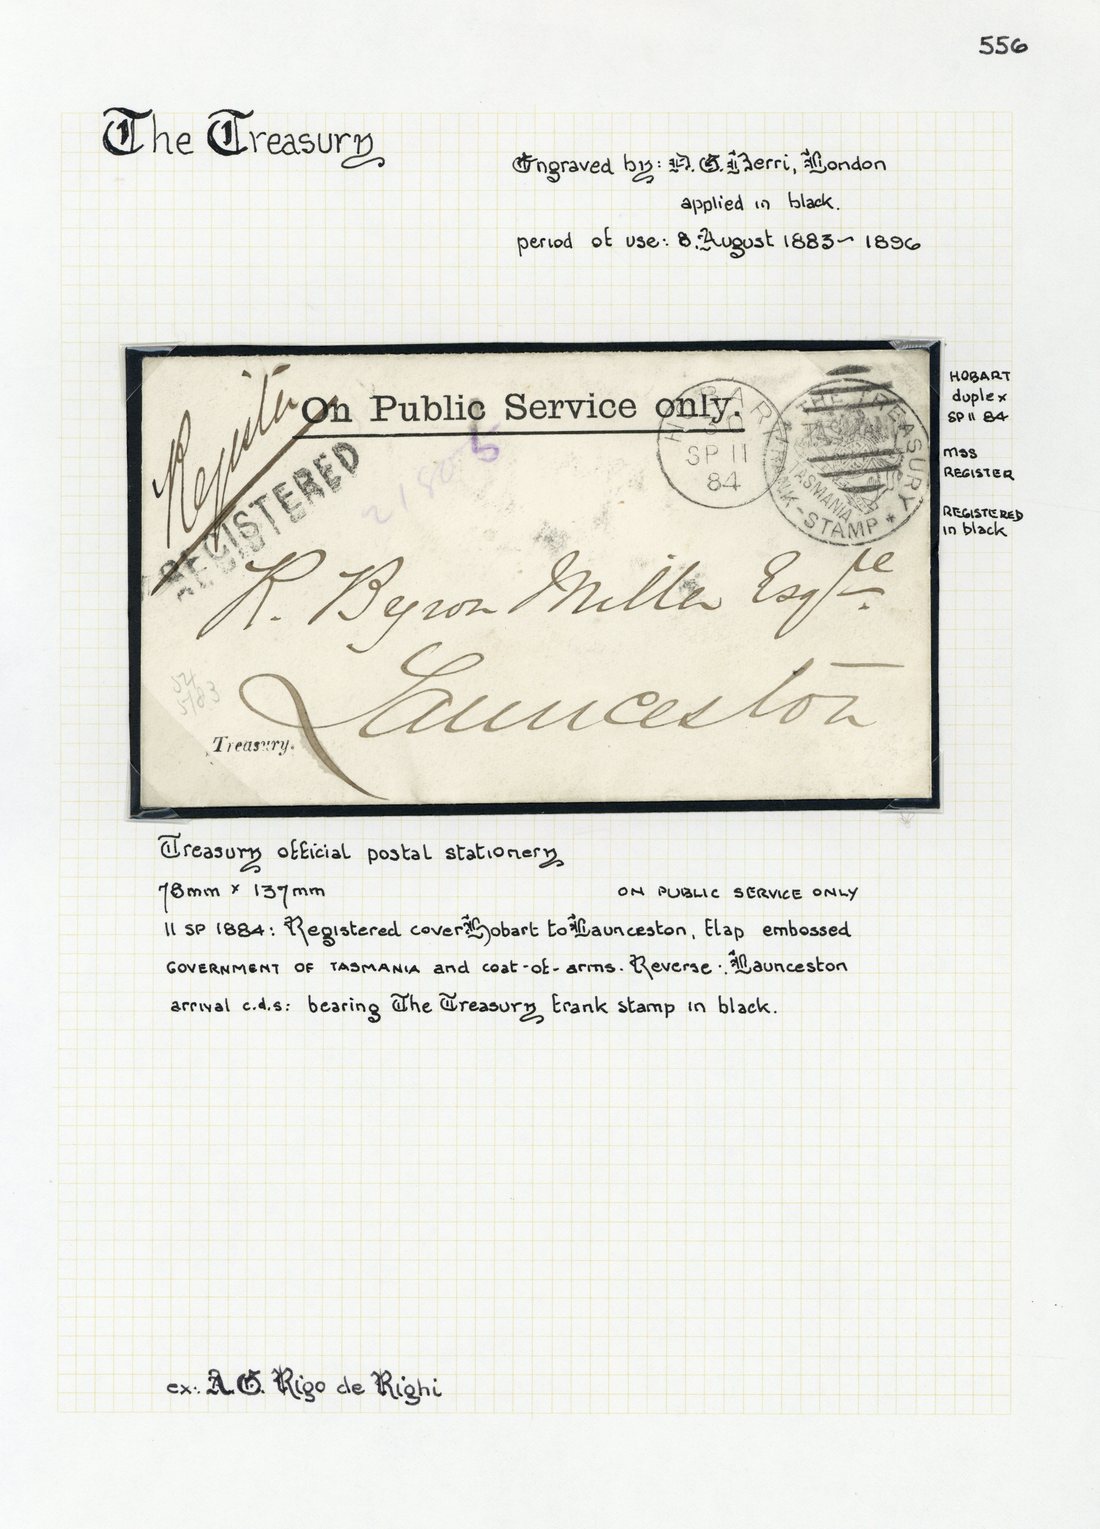 556
The Treasury
Engraved by: D.G. Berri, London
applied in black.
period of use: 8. August 1883 ~ 1896
Register
On Public Service only.
REGISTERED
HOBART
SP 11
84
THE TREASURY
TASMANIA
FRANK-STAMP
R. Byron Miller Esqre.
Launceston
Treasury.
HOBART
duplex
SP 11 84
mss
REGISTER
REGISTERED
in black
Treasury official postal stationery
78mm x 137mm ON PUBLIC SERVICE ONLY
11 SP 1884: Registered cover Hobart to Launceston, flap embossed
GOVERNMENT OF TASMANIA and coat-of-arms. Reverse: Launceston
arrival c.d.s: bearing The Treasury frank stamp in black.
ex: A.G. Rigo de Righi